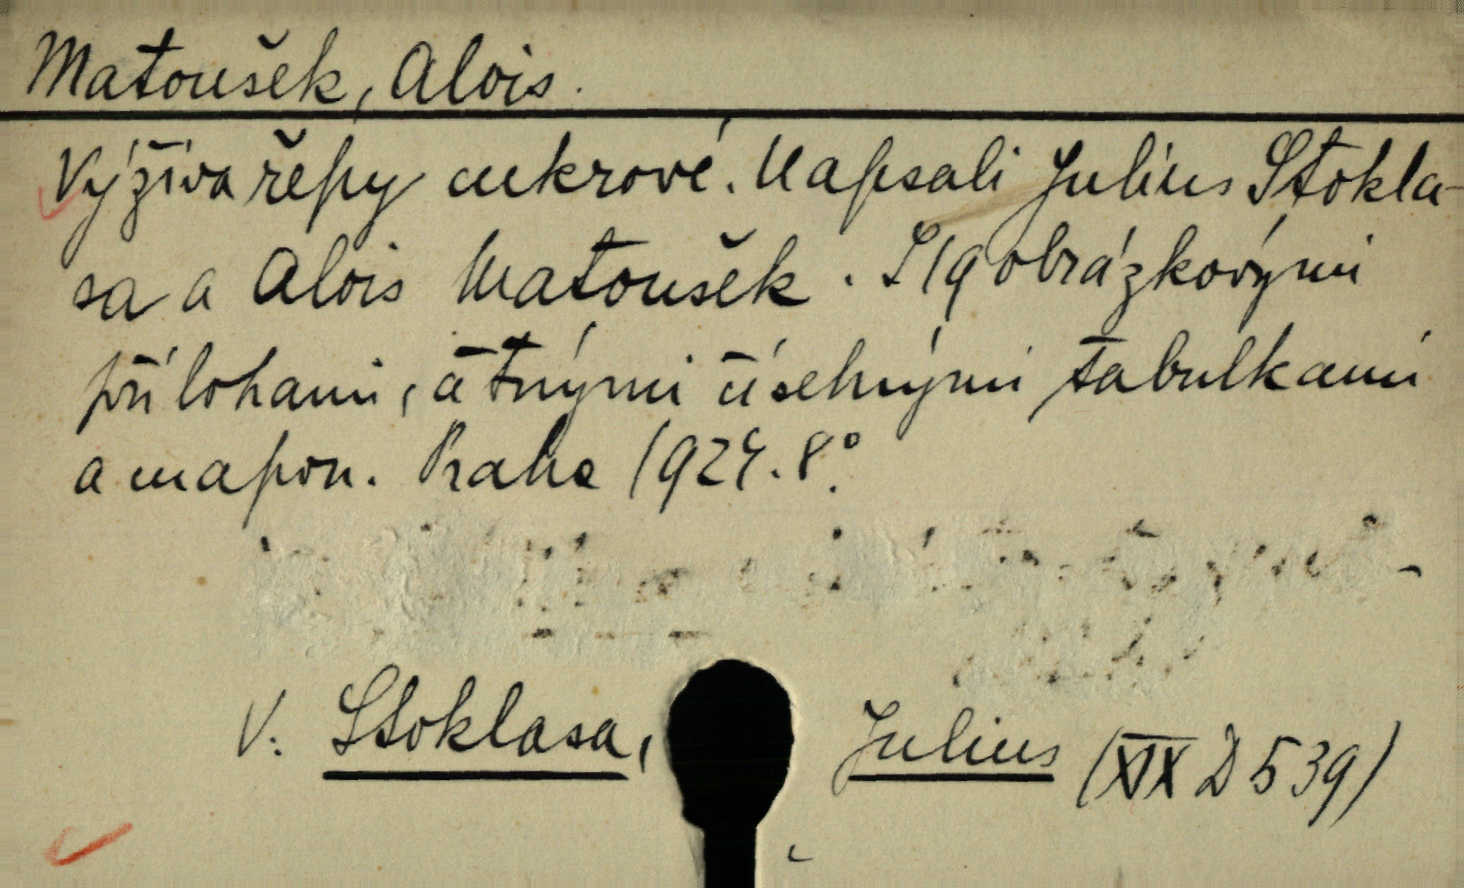 Matoušek, Alois.
Výživa řepy cukrové. Napsali Julius Stokla-
sa a Alois Matoušek. S 19 obrázkovými
přílohami, četnými číselnými tabulkami
a mapou. Praha 1924. 8°.
V. Stoklasa, Julius (XIX D 539)